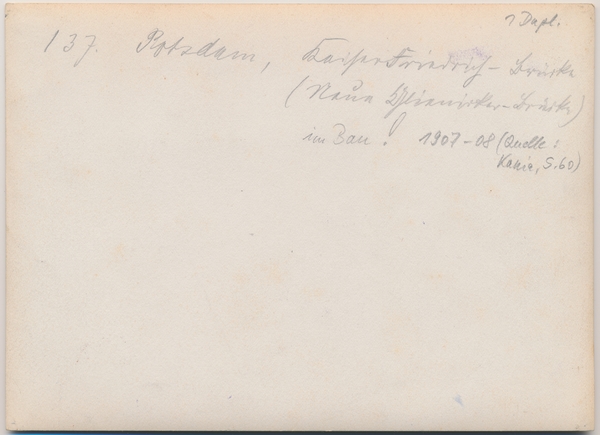 1 Dupl.
137. Potsdam, Kaiser Friedrich-Brücke
(Neue Glienicker-Brücke)
im Bau! 1907-08 (Quelle:
Kania, S. 60)